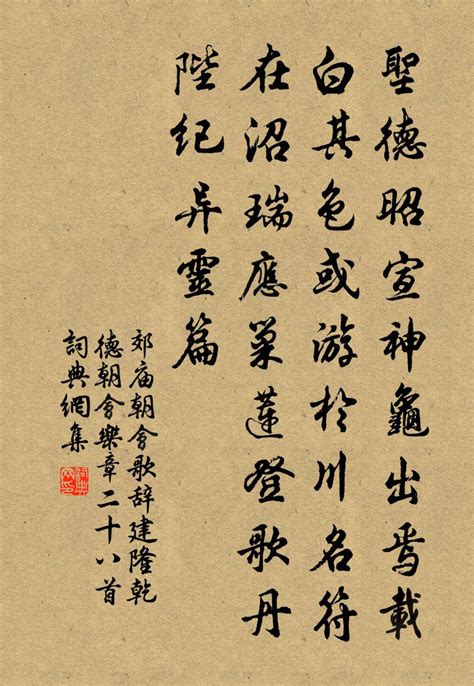 聖德昭宣神龜出焉載
白其色或游於川名符
在沼瑞應巢蓮登歌丹
陛紀异靈篇
郊庙朝會歌辞建隆乾
德朝會樂章二十八首
詞典網集